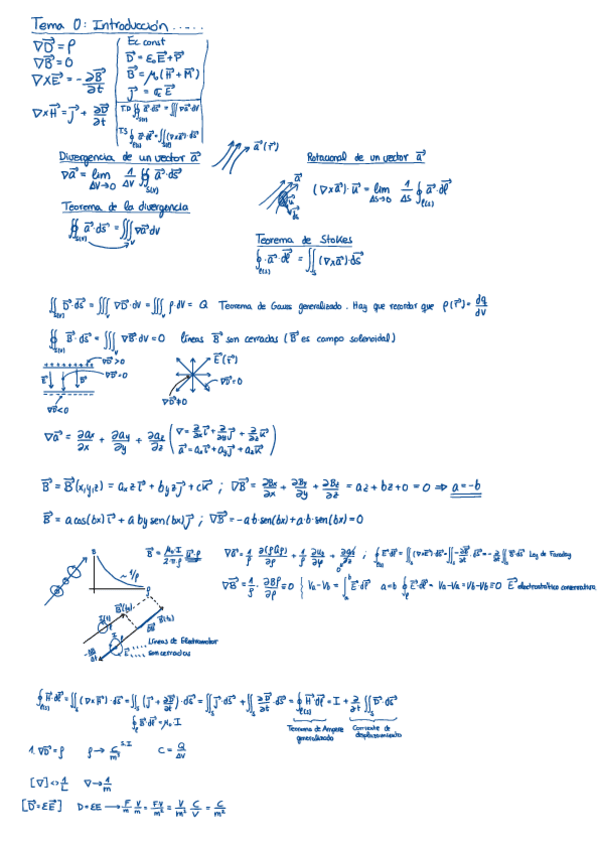 Tema 0: Introducción .....
∇D⃗ = ρ
∇B⃗ = 0
∇×E⃗ = - ∂B⃗/∂t
∇×H⃗ = J⃗ + ∂D⃗/∂t
Ec const
D⃗ = ε₀E⃗ + P⃗
B⃗ = μ₀(H⃗ + M⃗)
J⃗ = σE⃗
T.D ∯ a⃗·ds⃗ = ∭ ∇a⃗ dV
T.S ∮ a⃗·dl⃗ = ∬ (∇×a⃗)·ds⃗
Divergencia de un vector a⃗
a⃗(r⃗)
∇a⃗ = lim ΔV→0 1/ΔV ∯S(V) a⃗·ds⃗
Rotacional de un vector a⃗
a⃗
(∇×a⃗)·u⃗ = lim ΔS→0 1/ΔS ∮l(s) a⃗·dl⃗
Teorema de la divergencia
∯S(V) a⃗·ds⃗ = ∭V ∇a⃗ dV
Teorema de Stokes
∮l(s) a⃗·dl⃗ = ∬S (∇×a⃗)·ds⃗
∯S(V) D⃗·ds⃗ = ∭V ∇D⃗·dV = ∭V ρ·dV = Q Teorema de Gauss generalizado. Hay que recordar que ρ(r⃗) = dq/dV
∯S(V) B⃗·ds⃗ = ∭V ∇B⃗·dV = 0 líneas B⃗ son cerradas (B⃗ es campo solenoidal)
∇D⃗>0
∇D⃗=0
∇D⃗<0
E⃗(r⃗)
∇D⃗=0
∇D⃗≠0
∇a⃗ = ∂ax/∂x + ∂ay/∂y + ∂az/∂z (∇ = ∂/∂x i⃗ + ∂/∂y j⃗ + ∂/∂z k⃗
a⃗ = axi⃗ + ayj⃗ + azk⃗)
B⃗ = B⃗(x,y,z) = axz i⃗ + byz j⃗ + ck⃗ ; ∇B⃗ = ∂Bx/∂x + ∂By/∂y + ∂Bz/∂z = az + bz + 0 = 0 ⇒ a = -b
B⃗ = a cos(bx) i⃗ + a by sen(bx) j⃗ ; ∇B⃗ = -a b·sen(bx) + a·b·sen(bx) = 0
B⃗ = μ₀I/2πρ
∇B⃗ = 1/ρ · ∂Bρ/∂ρ = 0 { Va - Vb = ∫ E⃗·dl⃗ a=b ∮ E⃗·dl⃗ = Va - Va = Vb - Vb = 0 E⃗ electrostático conservativo
Ley de Faraday
B
~ 1/ρ
ρ
Líneas de Electromotor
son cerradas
∮l(s) H⃗·dl⃗ = ∬S (∇×H⃗)·ds⃗ = ∬S (J⃗ + ∂D⃗/∂t)·ds⃗ = ∬S J⃗·ds⃗ + ∬S ∂D⃗/∂t·ds⃗ = ∮l(s) H⃗·dl⃗ = I + ∂/∂t ∬S D⃗·ds⃗
∮ B⃗·dl⃗ = μ₀·I
Teorema de Ampere
generalizado
Corriente de
desplazamiento
1. ∇D⃗ = ρ ρ → C/m³ S.I C = Q/ΔV
[∇] <> 1/L ∇ → 1/m
[D⃗ = εE⃗] D = εE → F/m V/m = FV/m² = V/m² C/V = C/m²